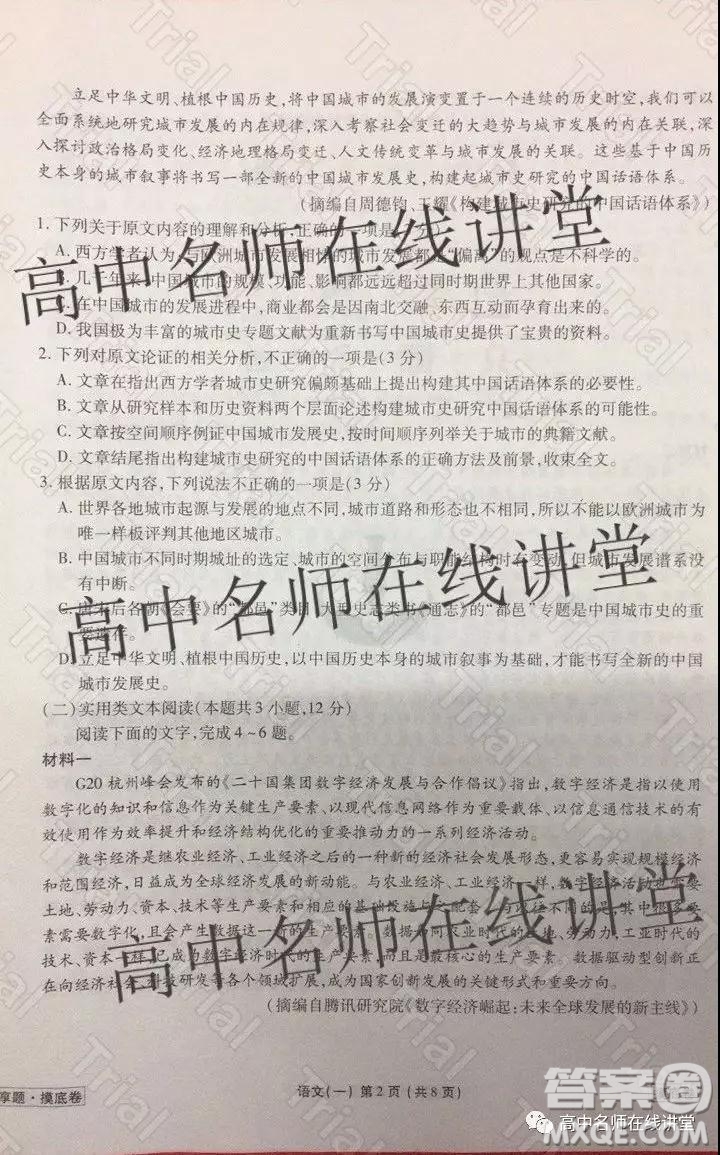 立足中华文明、植根中国历史,将中国城市的发展演变置于一个连续的历史时空,我们可以
全面系统地研究城市发展的内在规律,深入考察社会变迁的大趋势与城市发展的内在关联,深
入探讨政治格局变化、经济地理格局变迁、人文传统变革与城市发展的关联。这些基于中国历
史本身的城市叙事将书写一部全新的中国城市发展史,构建起城市史研究的中国话语体系。
(摘编自周德钧、王耀《构建城市史研究的中国话语体系》)
1. 下列关于原文内容的理解和分析,正确的一项是(3分)
A. 西方学者认为与欧洲城市发展相悖的城市发展都是“偏离”的观点是不科学的。
B. 几千年来,中国城市的规模、功能、影响都远远超过同时期世界上其他国家。
C. 在中国城市的发展进程中,商业都会是因南北交融、东西互动而孕育出来的。
D. 我国极为丰富的城市史专题文献为重新书写中国城市史提供了宝贵的资料。
2. 下列对原文论证的相关分析,不正确的一项是(3分)
A. 文章在指出西方学者城市史研究偏颇基础上提出构建其中国话语体系的必要性。
B. 文章从研究样本和历史资料两个层面论述构建城市史研究中国话语体系的可能性。
C. 文章按空间顺序例证中国城市发展史,按时间顺序列举关于城市的典籍文献。
D. 文章结尾指出构建城市史研究的中国话语体系的正确方法及前景,收束全文。
3. 根据原文内容,下列说法不正确的一项是(3分)
A. 世界各地城市起源与发展的地点不同,城市道路和形态也不相同,所以不能以欧洲城市为
唯一样板评判其他地区城市。
B. 中国城市不同时期城址的选定、城市的空间分布与职能结构时有变动,但城市发展谱系没
有中断。
C. 唐末后各朝《会要》的“都邑”类目、大型史志类书《通志》的“都邑”专题是中国城市史的重
要遗存。
D. 立足中华文明、植根中国历史,以中国历史本身的城市叙事为基础,才能书写全新的中国
城市发展史。
(二)实用类文本阅读(本题共3小题,12分)
阅读下面的文字,完成4~6题。
材料一
G20杭州峰会发布的《二十国集团数字经济发展与合作倡议》指出,数字经济是指以使用
数字化的知识和信息作为关键生产要素、以现代信息网络作为重要载体、以信息通信技术的有
效使用作为效率提升和经济结构优化的重要推动力的一系列经济活动。
数字经济是继农业经济、工业经济之后的一种新的经济社会发展形态,更容易实现规模经济
和范围经济,日益成为全球经济发展的新动能。与农业经济、工业经济一样,数字经济活动也需要
土地、劳动力、资本、技术等生产要素和相应的基础设施与之配套。与以往不同的是,其中很多要
素需要数字化,且会产生数据这一新的生产要素。数据如同农业时代的土地、劳动力,工业时代的
技术、资本一样,已成为数字经济时代的生产要素,而且是最核心的生产要素。数据驱动型创新正
在向经济社会、科技研发等各个领域扩展,成为国家创新发展的关键形式和重要方向。
(摘编自腾讯研究院《数字经济崛起:未来全球发展的新主线》)
享题·摸底卷
语文(一) 第2页 (共8页)
高中名师在线讲堂
高中名师在线讲堂
高中名师在线讲堂
答案圈
MXQE.COM
高中名师在线讲堂
Trial